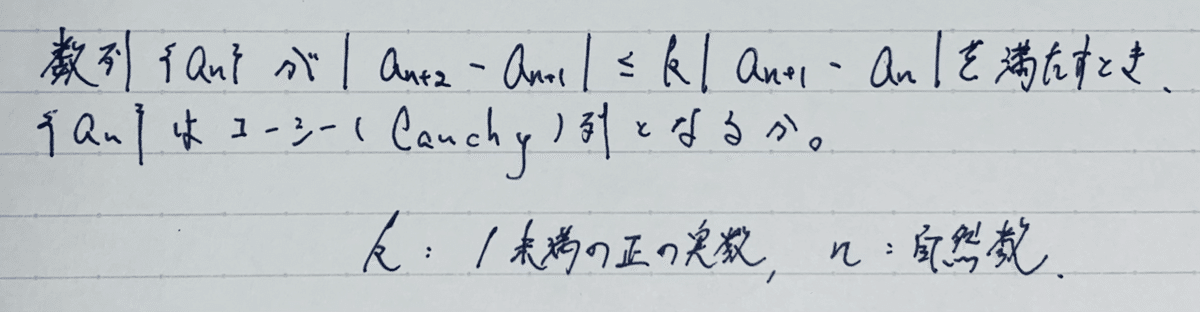 数列{an}が|an+2 - an+1| ≤ k|an+1 - an|を満たすとき、
{an}はコーシー(Cauchy)列となるか。
k: 1未満の正の実数, n:自然数.